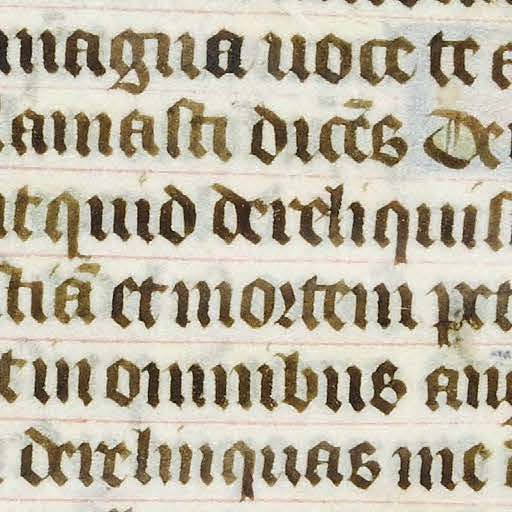 magna uoce te
lamasti dicēs De
ut quid dereliquis
stiā et mortem
in omnibus an
derelinquas me